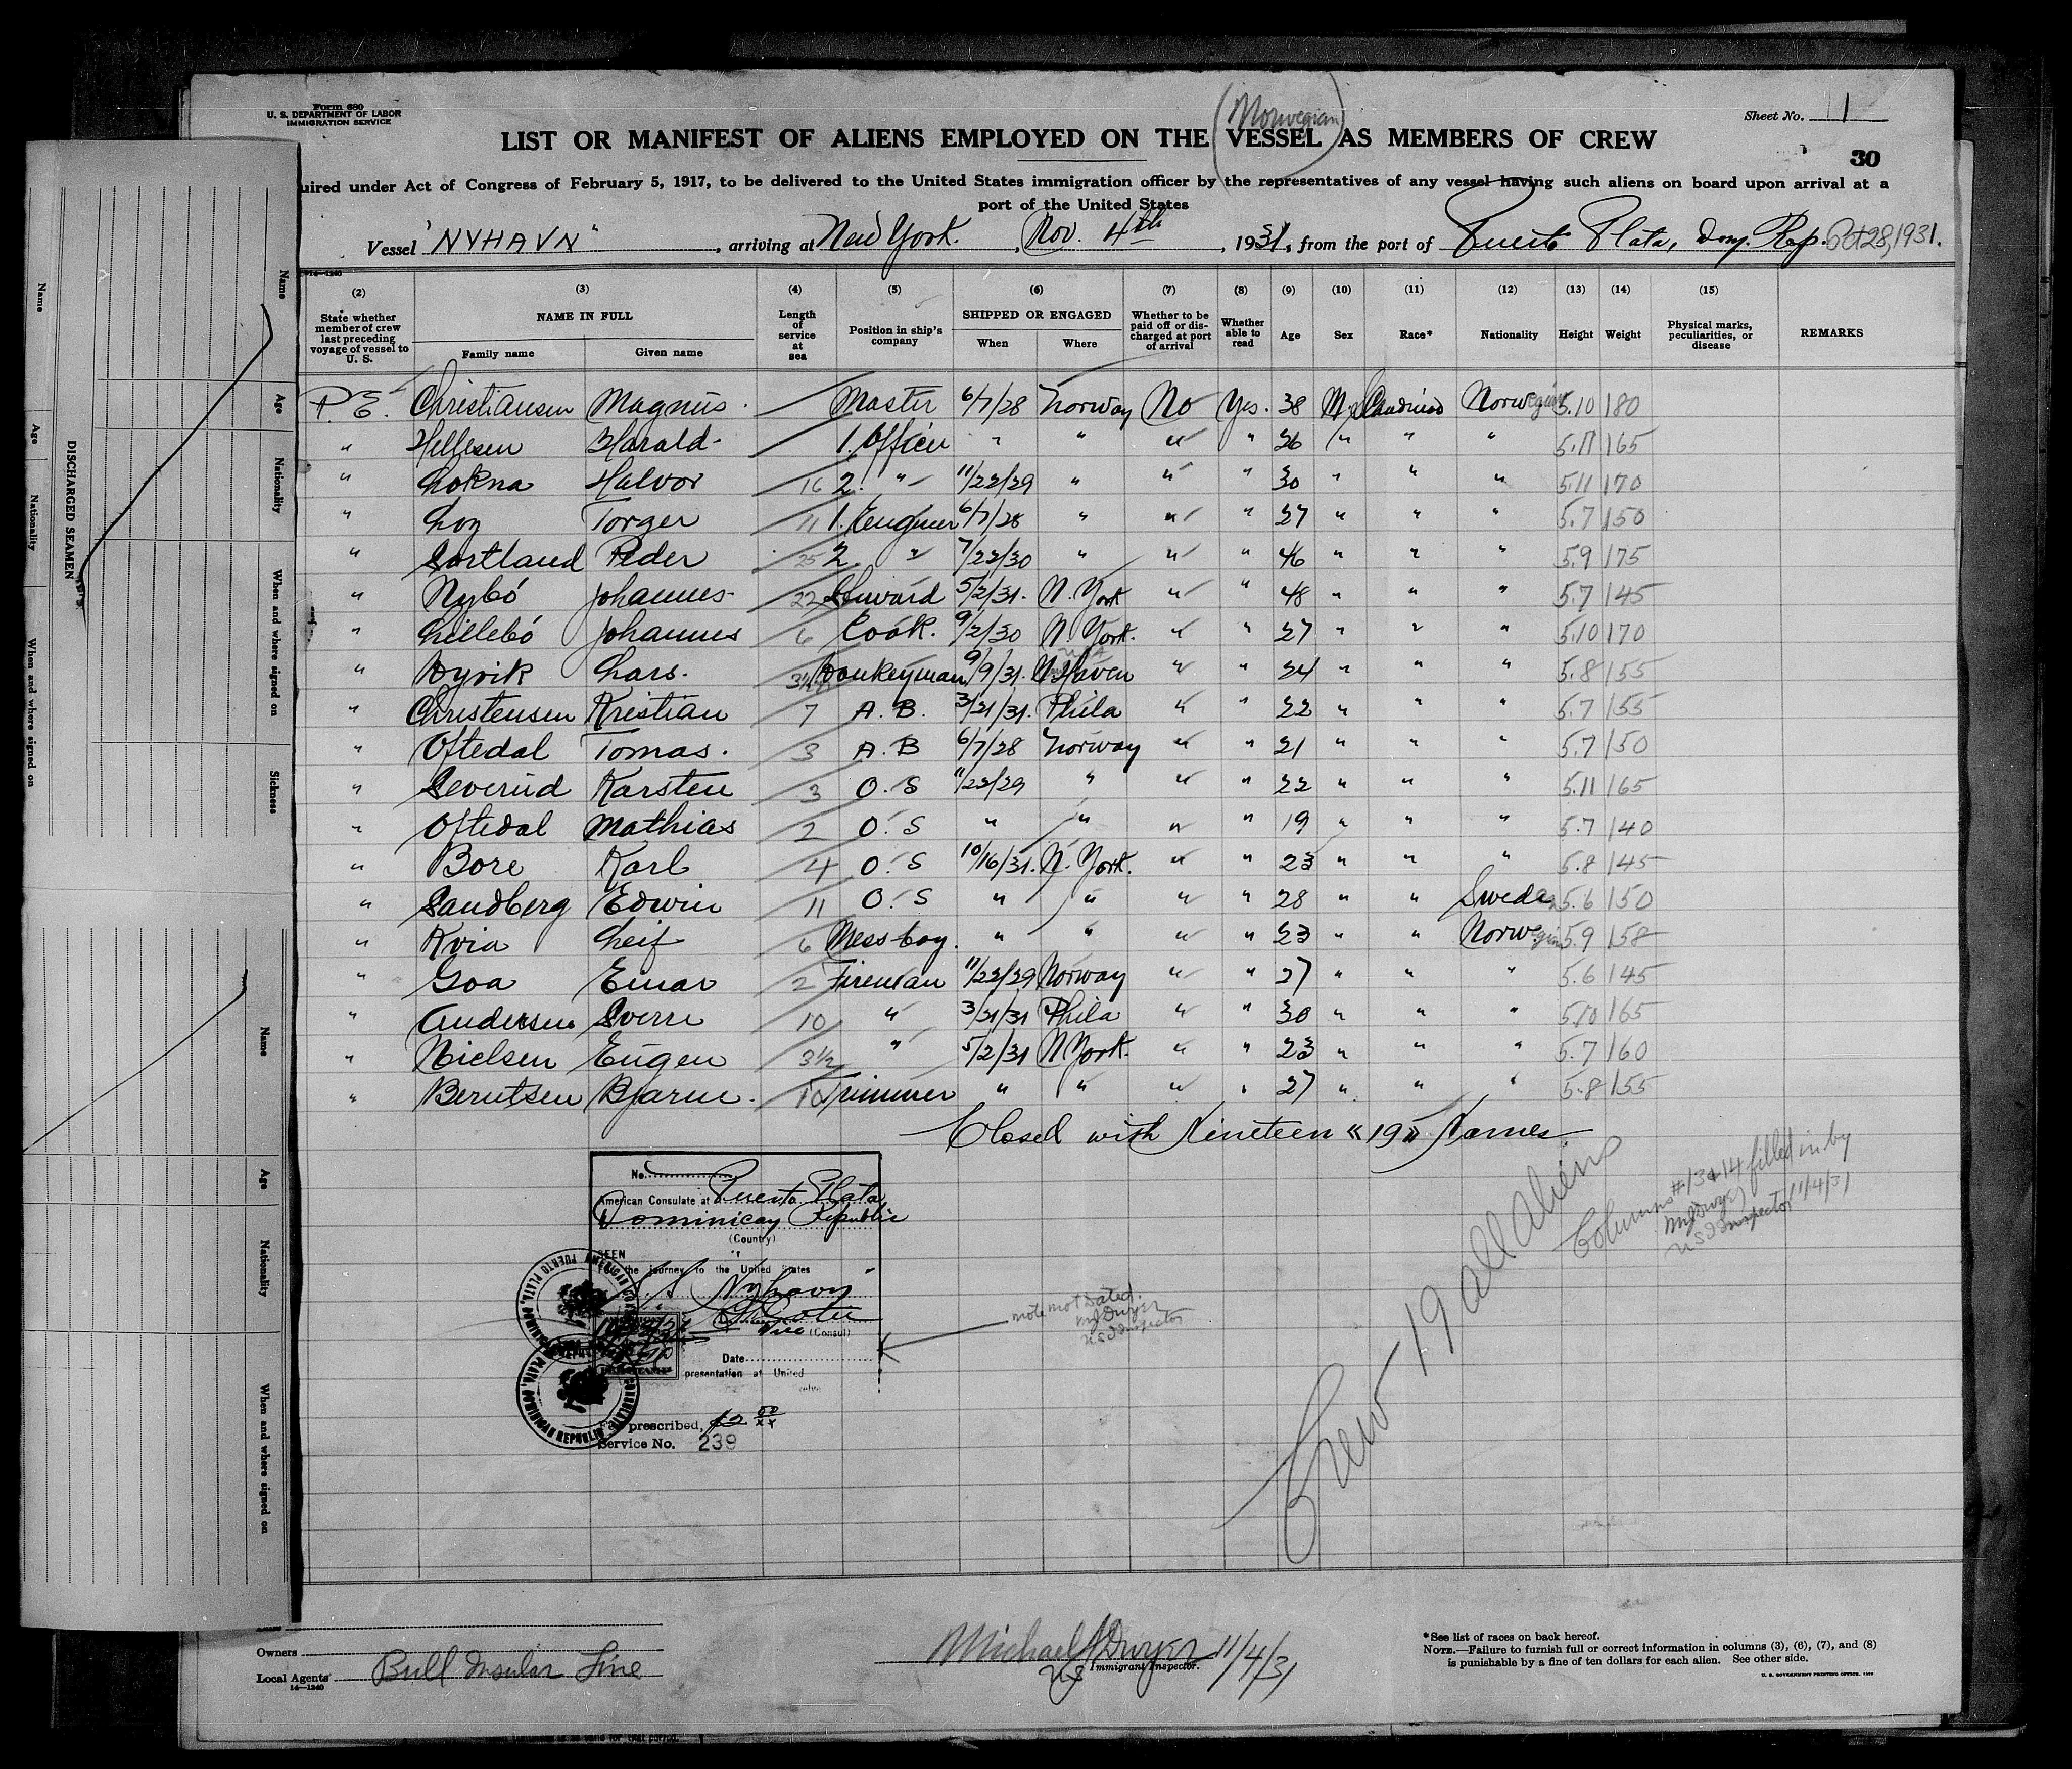 Form 680
U. S. DEPARTMENT OF LABOR
IMMIGRATION SERVICE
Sheet No. 1
(Norwegian)
LIST OR MANIFEST OF ALIENS EMPLOYED ON THE VESSEL AS MEMBERS OF CREW
30
uired under Act of Congress of February 5, 1917, to be delivered to the United States immigration officer by the representatives of any vessel having such aliens on board upon arrival at a
port of the United States
Vessel "NYHAVN", arriving at New York, Nov. 4th, 1931, from the port of Puerto Plata, Dom. Rep. Oct 28, 1931.
14—1240
(2) (3) (4) (5) (6) (7) (8) (9) (10) (11) (12) (13) (14) (15)
State whether member of crew last preceding voyage of vessel to U. S.
NAME IN FULL
Family name Given name
Length of service at sea
Position in ship's company
SHIPPED OR ENGAGED
When Where
Whether to be paid off or discharged at port of arrival
Whether able to read
Age Sex Race* Nationality Height Weight
Physical marks, peculiarities, or disease
REMARKS
P.E. Christiansen Magnus Master 6/7/28 Norway No Yes. 38 M Scandinav Norwegian 5.10 180
" Hellesen Harald 1. Officer " " " " 26 " " " 5.11 165
" Lokna Halvor 16 2. " 11/22/29 " " " 30 " " " 5.11 170
" Loy Torger 11 1. Engineer 6/7/28 " " " 27 " " " 5.7 150
" Sortland Peder 25 2 " 7/22/30 " " " 46 " " " 5.9 175
" Nybö Johannes 22 Steward 5/2/31. N. York " " 48 " " " 5.7 145
" Lillebö Johannes 6 Cook. 9/2/30 N. York. " " 27 " " " 5.10 170
" Dyvik Lars. 3 1/2 Donkeyman 9/9/31. N. Haven " " 24 " " " 5.8 155
" Christensen Kristian 7 A. B. 3/21/31. Phila " " 22 " " " 5.7 155
" Oftedal Tomas. 3 A. B 6/7/28 Norway " " 21 " " " 5.7 150
" Severud Karsten 3 O. S 11/22/29 " " " 22 " " " 5.11 165
" Oftedal Mathias 2 O. S " " " " 19 " " " 5.7 140
" Bore Karl 4 O. S 10/16/31. N. York. " " 23 " " " 5.8 145
" Sandberg Edwin 11 O. S " " " " 28 " " Sweden 5.6 150
" Kvia Leif 6 Messboy. " " " " 23 " " Norwegian 5.9 158
" Goa Einar 2 Fireman 11/22/29 Norway " " 27 " " " 5.6 145
" Andersen Sverre 10 " 3/21/31 Phila " " 30 " " " 5.10 165
" Nielsen Eugen 3 1/2 " 5/2/31 N York. " " 23 " " " 5.7 160
" Berntsen Bjarne. 10 Trimmer " " " " 27 " " " 5.8 155
Closed with Nineteen «19» Names.
Crew 19 all aliens
Columns #13 & 14 filled in by
M J Dwyer
U S I Inspector 11/4/31
No.
American Consulate at Puerto Plata,
Dominican Republic
(Country)
SEEN
For the journey to the United States
S.S. Nyhavn
Vice (Consul)
Date
presentation at United
Fee prescribed, $2 00/xx
Service No. 239
note not dated.
M J Dwyer
U S I Inspector
Owners
Local Agents Bull Insular Line
14—1240
Michael J Dwyer 11/4/31
US Immigrant Inspector.
*See list of races on back hereof.
NOTE.—Failure to furnish full or correct information in columns (3), (6), (7), and (8)
is punishable by a fine of ten dollars for each alien. See other side.
U. S. GOVERNMENT PRINTING OFFICE
DISCHARGED SEAMEN
Name Age Nationality When and where signed on Sickness
Name Age Nationality When and where signed on
Name Age Nationality When and where signed on